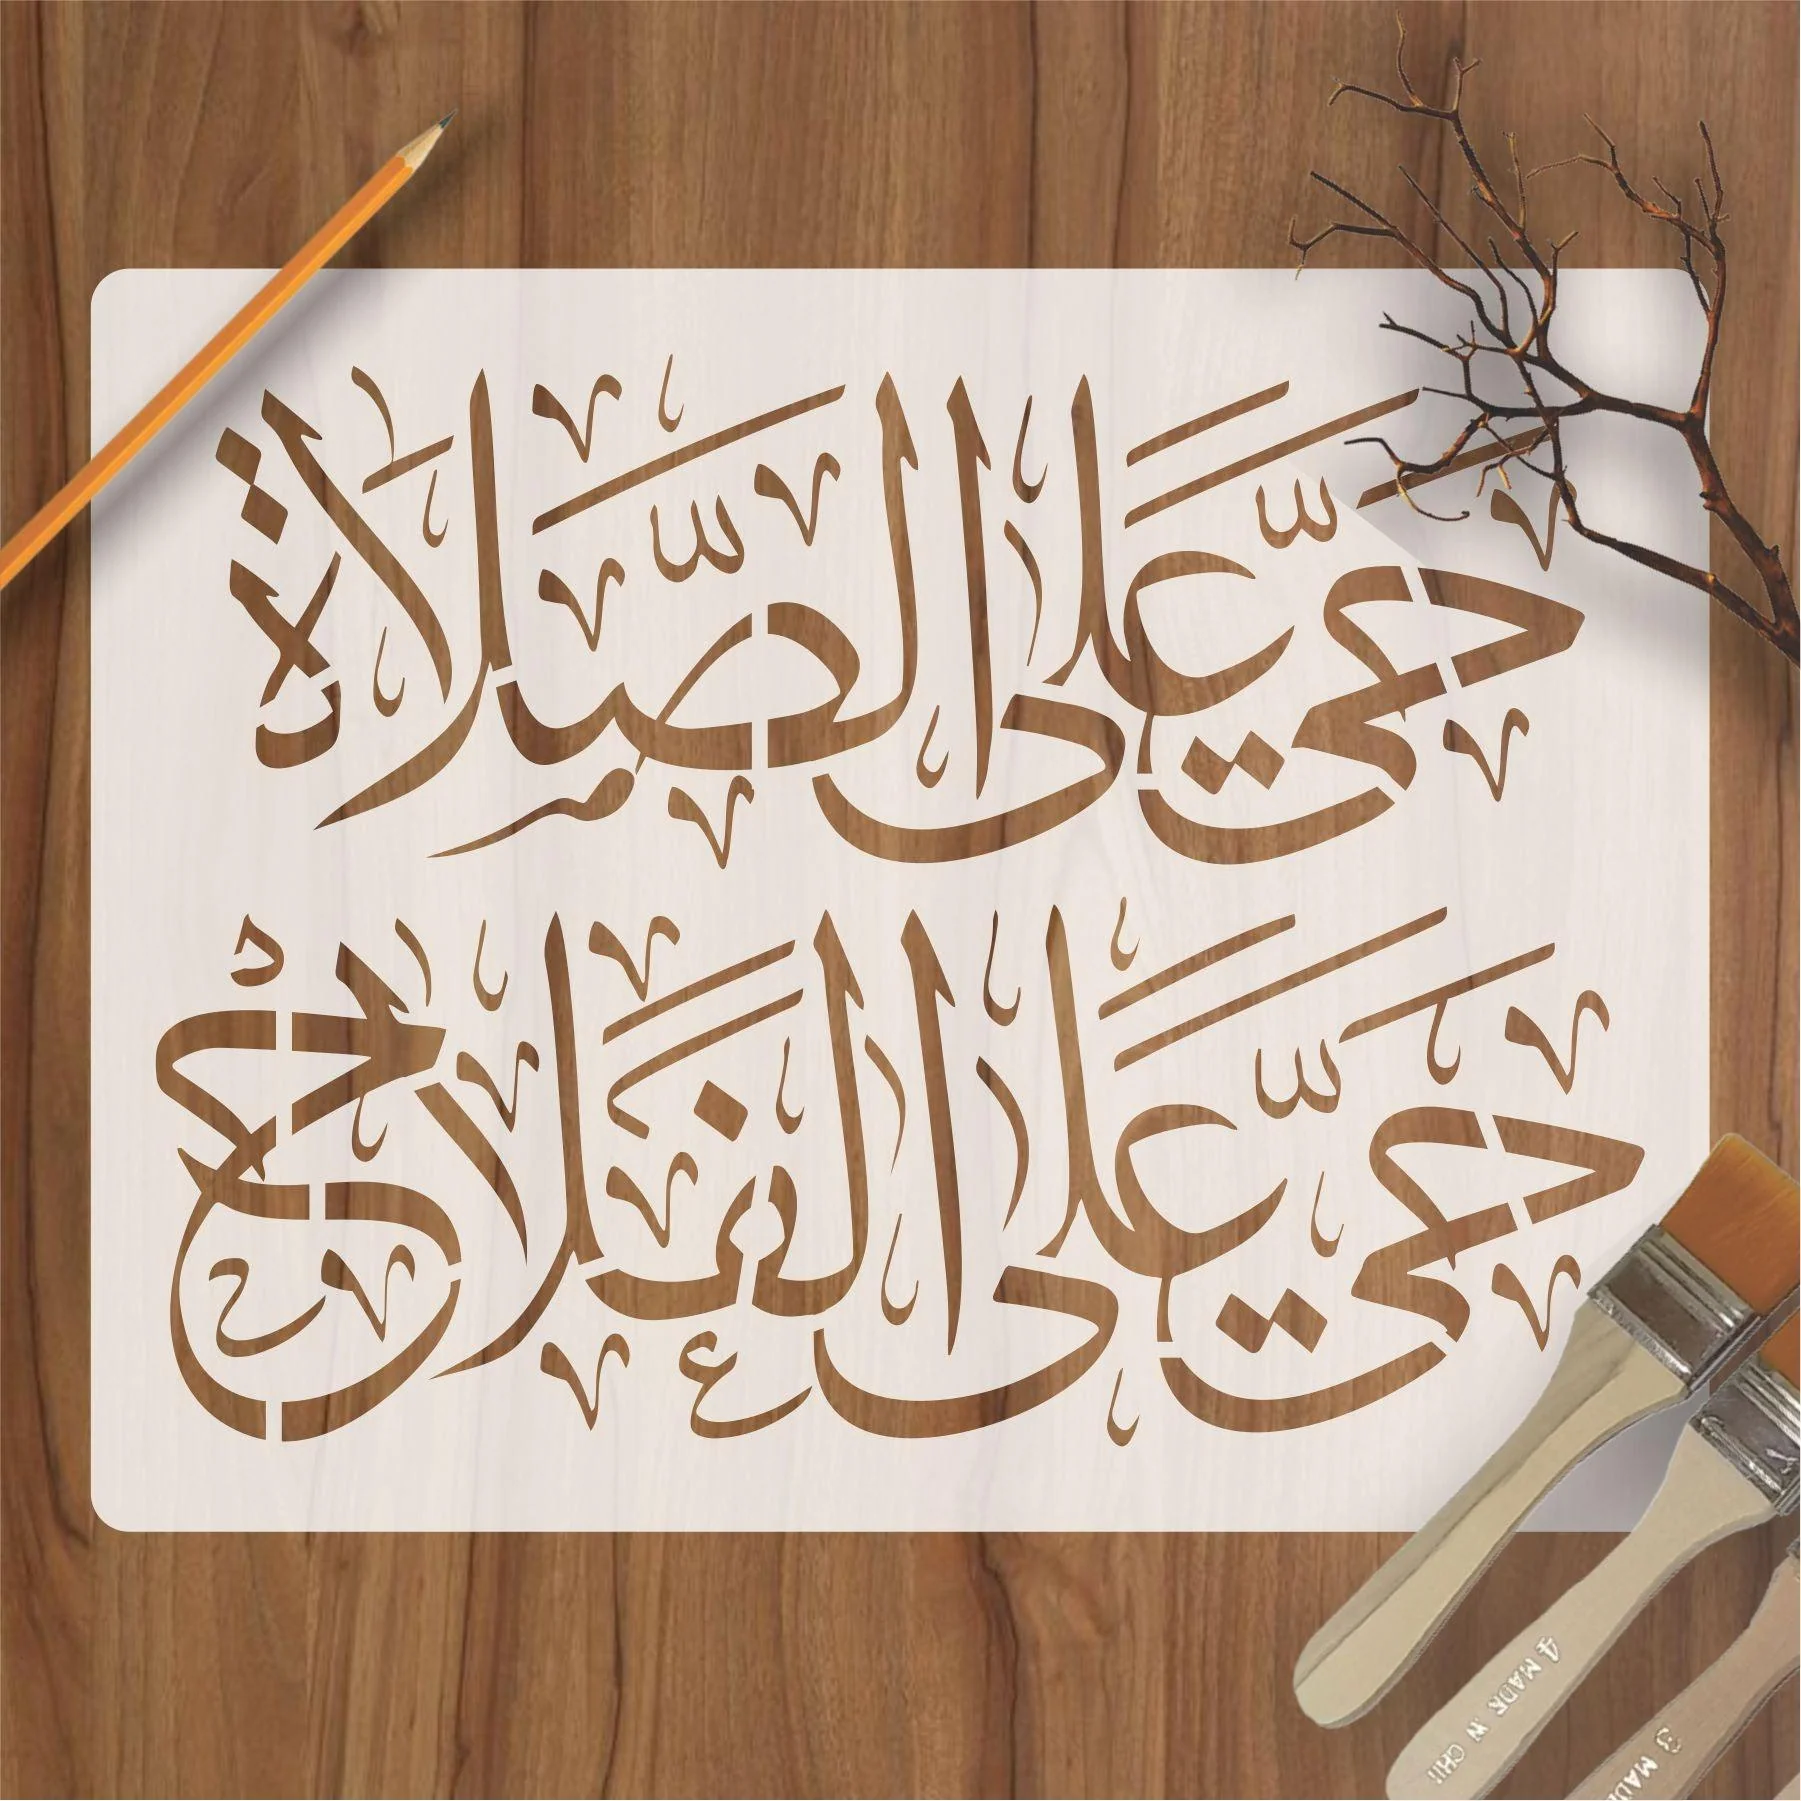 حَيَّ عَلَى الصَّلَاة
حَيَّ عَلَى الْفَلَاحْ
4 MADE IN CHI
3 MAD